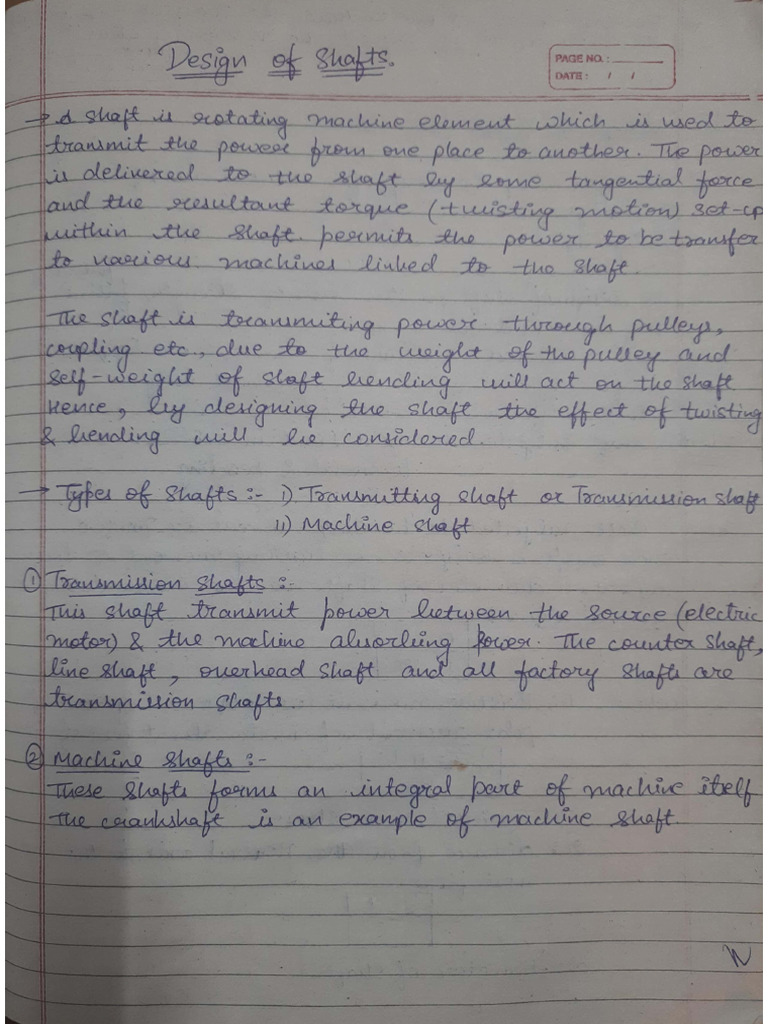 Design of Shafts.
PAGE NO. :
DATE : / /
→ A shaft is rotating machine element which is used to
transmit the power from one place to another. The power
is delivered to the shaft by some tangential force
and the resultant torque (twisting motion) set-up
within the shaft permits the power to be transfer
to various machines linked to the shaft.
The shaft is transmiting power through pulleys,
coupling etc., due to the weight of the pulley and
self-weight of shaft bending will act on the shaft
Hence, by designing the shaft the effect of twisting
& bending will be considered.
→ Types of Shafts :- i) Transmitting shaft or Transmission shaft
ii) Machine shaft
① Transmission Shafts :-
This shaft transmit power between the source (electric
motor) & the machine absorbing power. The counter shaft,
line shaft, overhead shaft and all factory shafts are
transmission shafts.
② Machine Shafts :-
These shafts forms an integral part of machine itself
The crankshaft is an example of machine shaft.